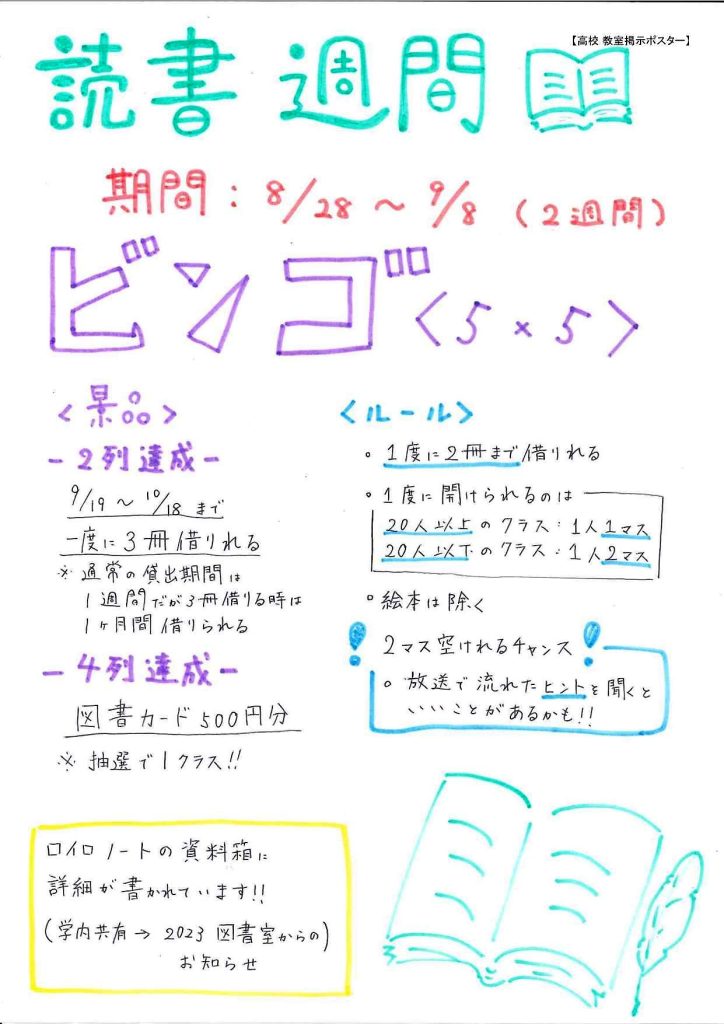 【高校 教室掲示ポスター】
読書週間
期間：8/28～9/8（2週間）
ビンゴ〈5×5〉
〈景品〉
-2列達成-
9/19～10/18まで
一度に3冊借りれる
※通常の貸出期間は
1週間だが3冊借りる時は
1ヶ月間借りられる
-4列達成-
図書カード500円分
※抽選で1クラス!!
〈ルール〉
。1度に2冊まで借りれる
。1度に開けられるのは
20人以上のクラス：1人1マス
20人以下のクラス：1人2マス
。絵本は除く
!2マス空けれるチャンス!
。放送で流れたヒントを聞くと
いいことがあるかも!!
ロイロノートの資料箱に
詳細が書かれています!!
(学内共有→2023 図書室からの
お知らせ)